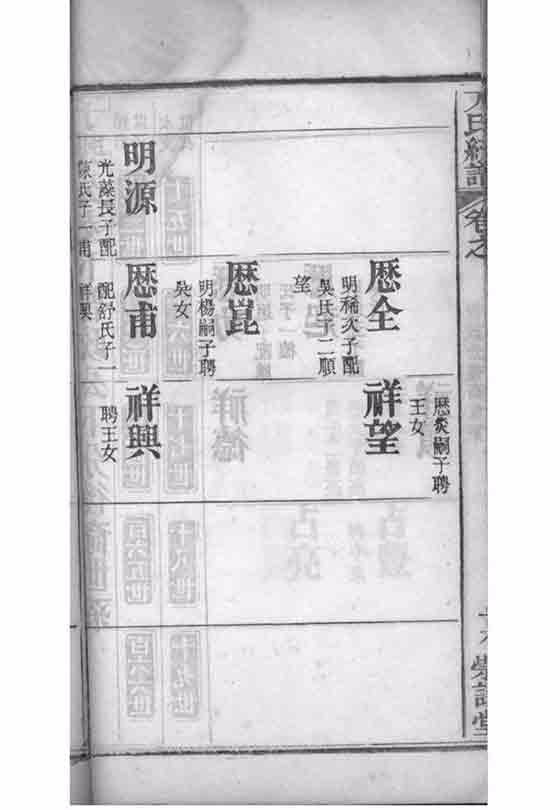 卷之
明源
光藻長子配
陳氏子一甫
歴全
明稀次子配
吳氏子二順
望
歴崑
明楊嗣子聘
吳女
歴甫
配舒氏子一
祥興
歴炎嗣子聘
王女
祥望
祥興
聘王女